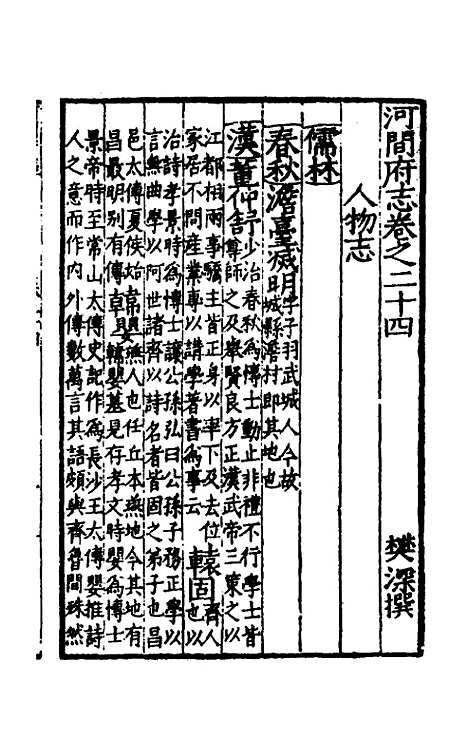 河間府志卷之二十四 樊深撰
人物志
儒林
春秋澹臺滅明字子羽武城人今故
城縣澹村即其地也
漢董仲舒少治春秋為博士動止非禮不行學士皆
尊師之及舉賢良方正漢武帝三策之以
江都相兩事驕主皆正身以率下及去位
家居不問產業專以講學著書為事云轅固齊人
也以
治詩孝景時為博士讓公孫弘曰公孫子務正學以
言無曲學以阿世諸齊以詩名者皆固之弟子也昌
邑太傅夏侯始
昌最明别有傳韓嬰燕人也任丘本燕地今其地有
韓嬰墓見存孝文時嬰為博士
景帝時至常山太傅史記作為長沙王太傅嬰推詩
人之意而作內外傳數萬言其語頗與齊魯間殊然